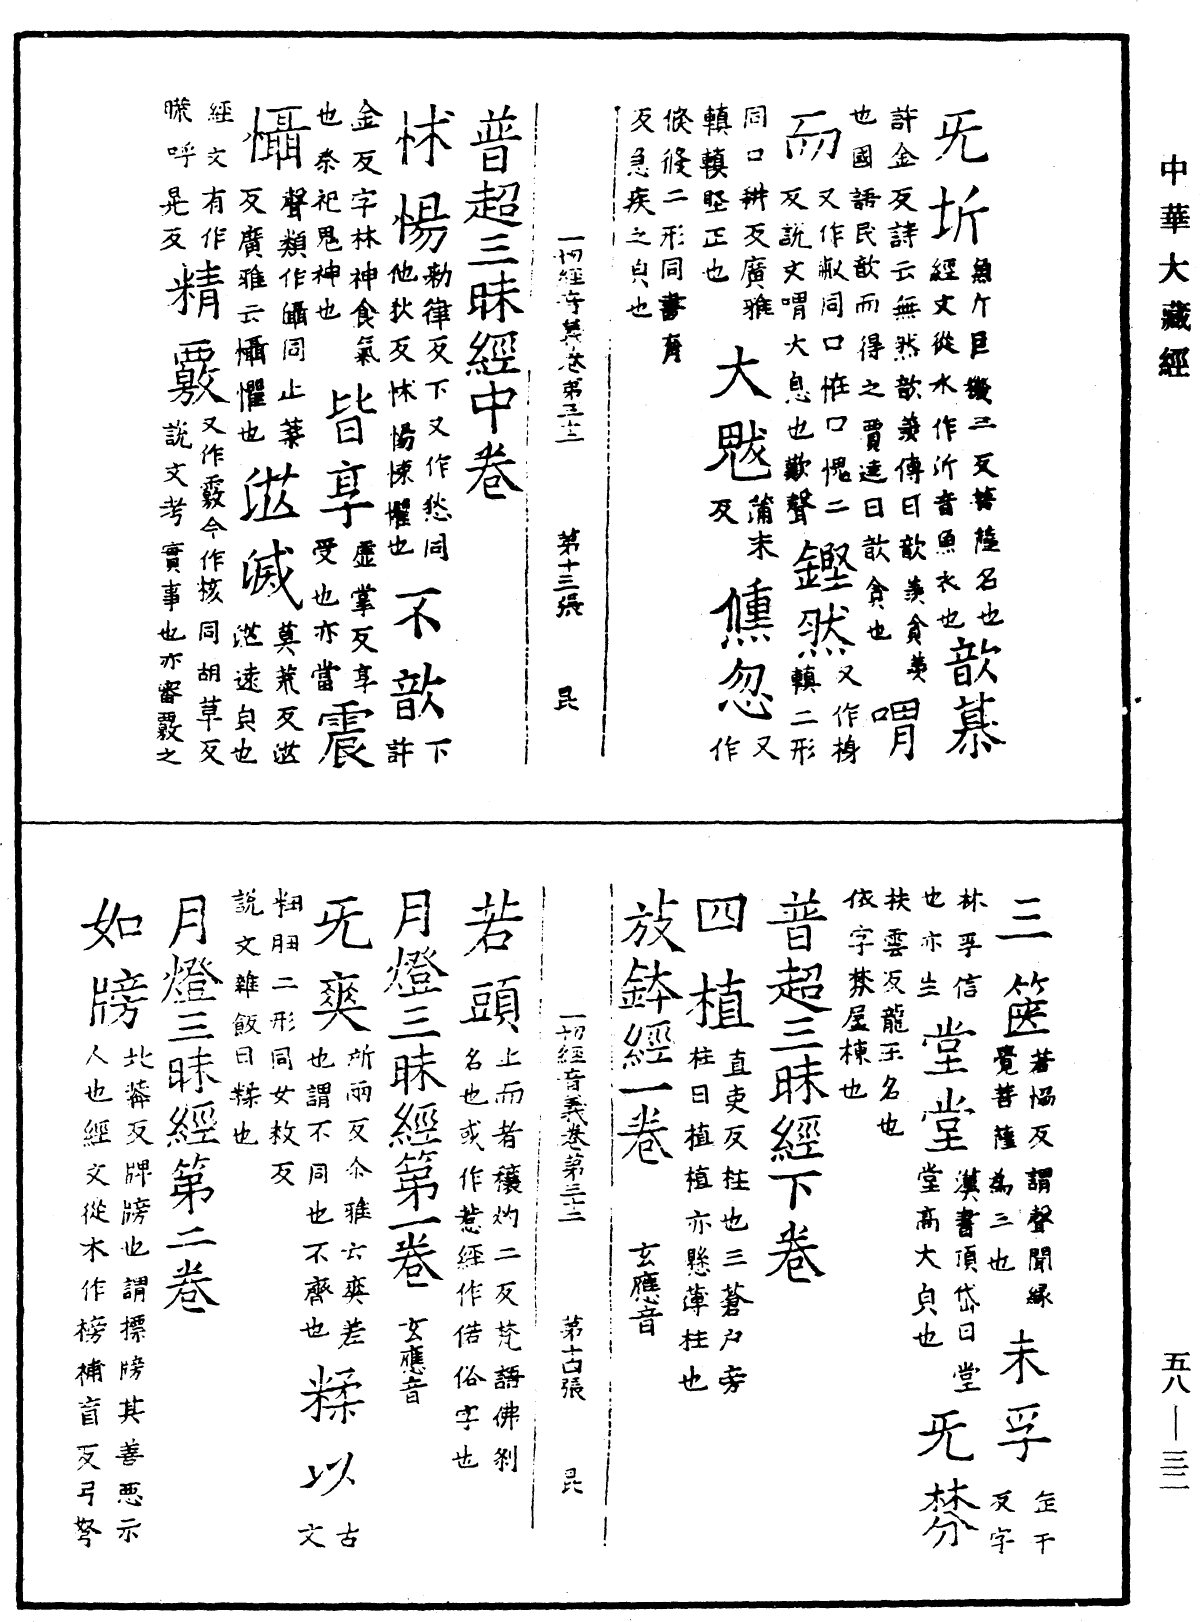 中華大藏經
旡圻魚斤巨幾二反菩薩名也經文從水作沂音魚衣也歆慕
許金反詩云無然歆羨傳曰歆羨貪羨也國語民歆而得之賈逵曰歆貪也喟
而又作嘳同口恠口愧二反說文喟大息也歎聲鏗然又作𢫦轒二形
同口耕反廣雅轒轒堅正也大魃蒲末反儵忽又作
倏㣊二形同書育反急疾之皃也
一切經音義卷第三十三 第十三張 昆
普超三昧經中卷
怵惕勑律反下又作愁同他狄反怵惕悚懼也不歆下許
金反字林神食氣也祭祀鬼神也皆享虛掌反享受也亦當震
懾聲類作㒤同止葉反廣雅云懾懼也茫滅莫荒反茫茫遠皃也
經文有作㬻呼晃反精覈又作覈今作核同胡革反說文考實事也亦審覈之
三篋苦愜反謂聲聞緣覺菩薩為三也未孚缶于反字
林孚信也亦生堂堂漢書項岱曰堂堂高大皃也旡棼
扶雲反龍王名也依字棼屋棟也
普超三昧經下卷
四植直吏反柱也三蒼戶旁柱曰植植亦懸薄柱也
放鉢經一卷 玄應音
一切經音義卷第三十三 第十四張 昆
若頭止而者穰灼二反梵語佛剎名也或作惹經作偌俗字也
月燈三昧經第一卷 玄應音
旡爽所兩反尒雅云爽差也謂不同也不齊也糅以古文
粈䏔二形同女救反說文雜飯曰糅也
月燈三昧經第二卷
如牓北莽反牌牓也謂摽牓其善惡示人也經文從木作榜補盲反弓弩
五八—三二